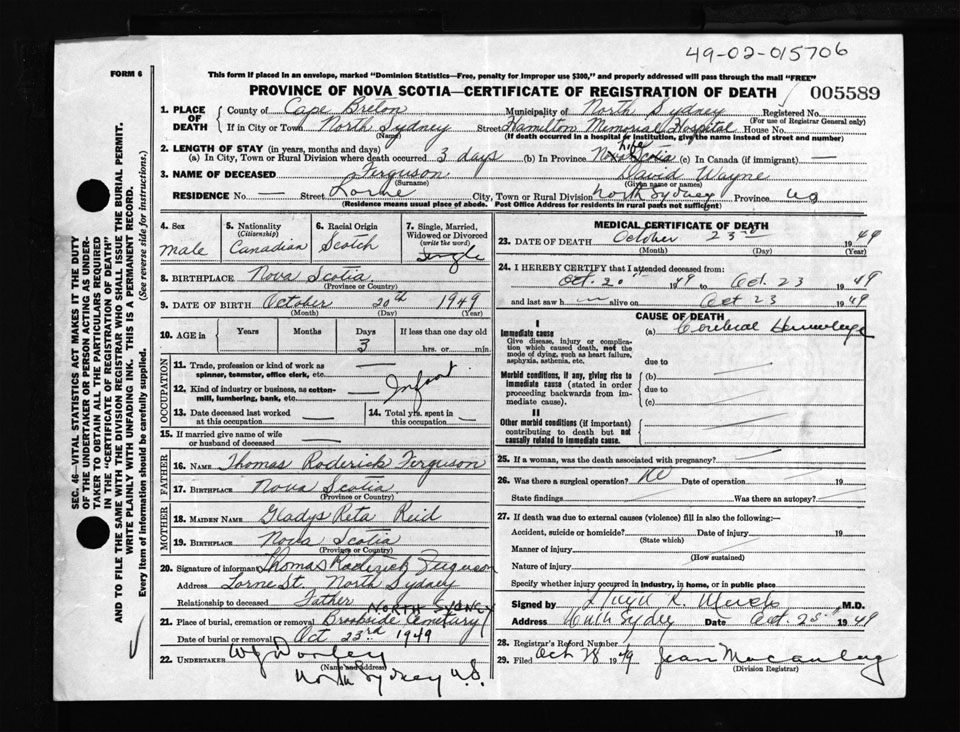 49-02-015706
FORM 6
This form if placed in an envelope, marked "Dominion Statistics—Free, penalty for improper use $300," and properly addressed will pass through the mail "FREE"
PROVINCE OF NOVA SCOTIA—CERTIFICATE OF REGISTRATION OF DEATH
005589
1. PLACE OF DEATH
County of Cape Breton Municipality of North Sydney Registered No.
(For use of Registrar General only)
If in City or Town North Sydney Street Hamilton Memorial Hospital House No.
(Name) (If death occurred in a hospital or institution, give the name instead of street and number)
2. LENGTH OF STAY (in years, months and days)
(a) In City, Town or Rural Division where death occurred 3 days (b) In Province Nova Scotia Life (c) In Canada (if immigrant) —
3. NAME OF DECEASED Ferguson David Wayne
(Surname) (Given name or names)
RESIDENCE No. — Street Lorne City, Town or Rural Division North Sydney Province NS
(Residence means usual place of abode. Post Office Address for residents in rural parts not sufficient)
4. Sex
male
5. Nationality
(Citizenship)
Canadian
6. Racial Origin
Scotch
7. Single, Married, Widowed or Divorced
(write the word)
Single
8. BIRTHPLACE Nova Scotia
(Province or Country)
9. DATE OF BIRTH October 20th 1949
(Month) (Day) (Year)
10. AGE in
Years Months Days If less than one day old
3 hrs. or min.
OCCUPATION
11. Trade, profession or kind of work as spinner, teamster, office clerk, etc. —
12. Kind of industry or business, as cotton-mill, lumbering, bank, etc. Infant
13. Date deceased last worked at this occupation —
14. Total yrs. spent in this occupation —
15. If married give name of wife or husband of deceased —
FATHER
16. NAME Thomas Roderick Ferguson
17. BIRTHPLACE Nova Scotia
(Province or Country)
MOTHER
18. MAIDEN NAME Gladys Reta Reid
19. BIRTHPLACE Nova Scotia
(Province or Country)
20. Signature of informant Thomas Roderick Ferguson
Address Lorne St. North Sydney
Relationship to deceased Father
21. Place of burial, cremation or removal Brookside Cemetary NORTH SYDNEY
Date of burial or removal Oct 23rd 1949
22. UNDERTAKER
(Name and Address)
North Sydney N.S.
MEDICAL CERTIFICATE OF DEATH
23. DATE OF DEATH October 23 1949
(Month) (Day) (Year)
24. I HEREBY CERTIFY that I attended deceased from:
Oct. 20 1949 to Oct. 23 1949
and last saw h— alive on Oct 23 1949
CAUSE OF DEATH
I
Immediate cause (a) Cerebral Hemorrhage
Give disease, injury or complication which caused death, not the mode of dying, such as heart failure, asphyxia, asthenia, etc.
due to
Morbid conditions, if any, giving rise to immediate cause (stated in order proceeding backwards from immediate cause).
(b)
due to
(c)
II
Other morbid conditions (if important) contributing to death but not causally related to immediate cause.
25. If a woman, was the death associated with pregnancy?
26. Was there a surgical operation? No Date of operation 19
State findings Was there an autopsy?
27. If death was due to external causes (violence) fill in also the following:—
Accident, suicide or homicide? Date of injury 19
(State which)
Manner of injury
(How sustained)
Nature of injury
Specify whether injury occurred in industry, in home, or in public place
Signed by M.D.
Address North Sydney Date Oct. 25 1949
28. Registrar's Record Number
29. Filed Oct 28 1949 Jean Macaulay
(Division Registrar)
SEC. 46—VITAL STATISTICS ACT MAKES IT THE DUTY OF THE UNDERTAKER OR PERSON ACTING AS UNDERTAKER TO OBTAIN ALL THE PARTICULARS REQUIRED IN THE "CERTIFICATE OF REGISTRATION OF DEATH"
AND TO FILE THE SAME WITH THE DIVISION REGISTRAR WHO SHALL ISSUE THE BURIAL PERMIT.
WRITE PLAINLY WITH UNFADING INK. THIS IS A PERMANENT RECORD.
Every item of information should be carefully supplied. (See reverse side for instructions.)